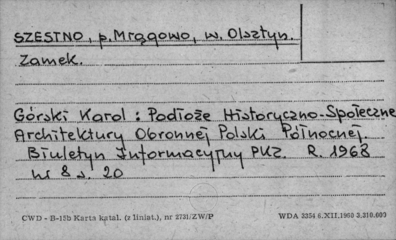 SZESTNO, p. Mrągowo, w. Olsztyn.
Zamek.
Górski Karol : Podłoże Historyczno-Społeczne
Architektury Obronnej Polski Północnej.
Biuletyn Informacyjny PKZ. R. 1968
nr 8 s. 20
CWD - B-15b Karta katal. (z liniat.), nr 2731/ZW/P WDA 3354 6.XII.1960 3.210.000